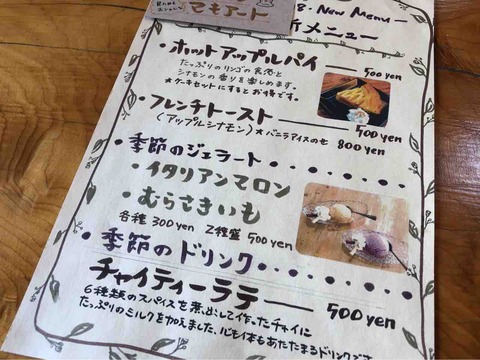 てもアート
8. New Menu
メニュー
・ホットアップルパイ 500yen
たっぷりのリンゴの食感と
シナモンの香りを楽しめます。
★ケーキセットにするとお得です。
・フレンチトースト 500yen
(アップルシナモン) ★バニラアイスのせ 800yen
・季節のジェラート
・イタリアンマロン
・むらさきいも
各種 300yen 2種盛 500yen
・季節のドリンク
チャイティーラテ 500yen
6種類のスパイスを煮出して作ったチャイに
たっぷりのミルクを加えました。心も体もあたたまるドリンクです